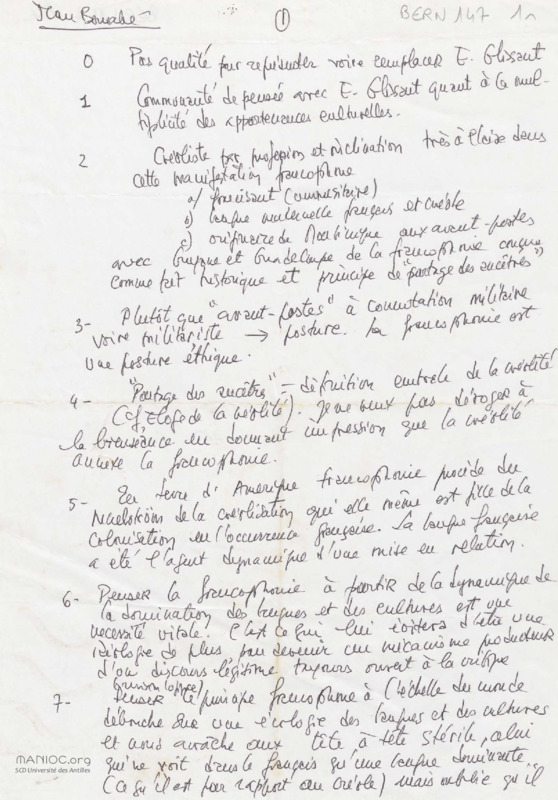 Jean Bernabé
①
BERN 147 1n
0 Pas qualité pour représenter voire remplacer E. Glissant
1 Communauté de pensée avec E. Glissant quant à la mul-
tiplicité des appartenances culturelles.
2 Créoliste par profession et inclination très à l'aise dans
cette manifestation francophone
a/ francisant (universitaire)
b) langue maternelle français et créole
c) originaire de Martinique aux avant-postes
avec Guyane et Guadeloupe de la francophonie conçue
comme fait historique et principe de "partage des ancêtres"
3- Plutôt que "avant-postes" à connotation militaire
voire militariste → posture. La francophonie est
une posture éthique.
4- "Partage des ancêtres" = définition centrale de la créolité
(cf. Eloge de la créolité). Je ne veux pas déroger à
la bienséance en donnant impression que la créolité
annexe la francophonie.
5- En terre d'Amérique francophonie procède du
Maelström de la créolisation qui elle même est fille de la
colonisation en l'occurrence française. La langue française
a été l'agent dynamique d'une mise en relation.
6- Penser la francophonie à partir de la dynamique de
la domination des langues et des cultures est une
nécessité vitale. C'est ce qui lui évitera d'être une
idéologie de plus pour devenir un mécanisme producteur
d'un discours légitime toujours ouvert à la critique
7- Penser le puissance francophone à l'échelle du monde
débouche sur une écologie des langues et des cultures
et nous arrache aux tête à tête stérile, celui
qui ne voit dans le français qu'une langue dominante
(ce qu'il est par rapport au créole) mais oublie qu'il
MANIOC.org
SCD Université des Antilles